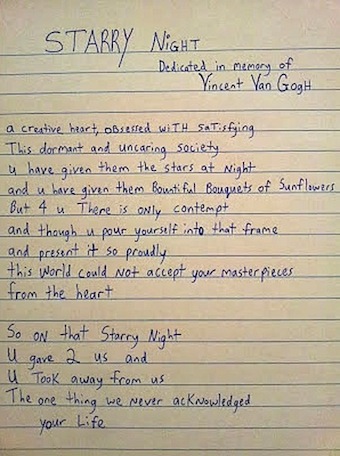 STARRY NIGHT
Dedicated in memory of
Vincent Van GogH
a creative heart, obsessed wiTH saTisfying
This dormant and uncaring society
u have given them the stars at Night
and u have given them Bountiful Bouquets of Sunflowers
But 4 u There is only contempt
and though u pour yourself into that frame
and present it so proudly
this World could Not accept your masterpieces
from the heart
So oN that Starry Night
U gave 2 us and
U Took away from us
The one thing we Never acKNowledged
your Life